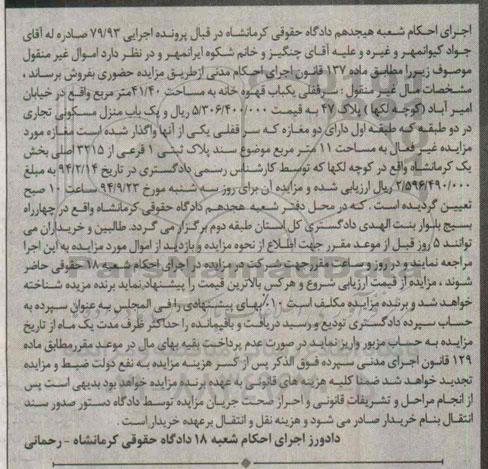 اجرای احکام شعبه هیجدهم دادگاه حقوقی کرمانشاه در قبال پرونده اجرایی ۷۹/۹۳ صادره له آقای
جواد کیوانمهر و غیره و علیه آقای چنگیز و خانم شکوه ایرانمهر و در نظر دارد اموال غیر منقول
موصوف زیر را مطابق ماده ۱۳۷ قانون اجرای احکام مدنی ازطریق مزایده حضوری بفروش برساند ،
مشخصات مال غیر منقول : سرقفلی یکباب قهوه خانه به مساحت ۴۱/۴۰متر مربع واقع در خیابان
امیر آباد (کوچه لکها ) پلاک ۴۷ به قیمت ۵/۳۰۶/۴۰۰/۰۰۰ ریال و یک باب منزل مسکونی تجاری
در دو طبقه که طبقه اول دارای دو مغازه که سر قفلی یکی از آنها واگذار شده است مغازه مورد
مزایده غیر فعال به مساحت ۱۱ متر مربع موضوع سند پلاک ثبتی ۱ فرعی از ۳۳۱۵ اصلی بخش
یک کرمانشاه واقع در کوچه لکها که توسط کارشناس رسمی دادگستری در تاریخ ۹۴/۲/۱۴ به مبلغ
۲/۵۹۶/۴۹۰/۰۰۰ ریال ارزیابی شده و مزایده آن برای روز سه شنبه مورخ ۹۴/۹/۲۳ ساعت ۱۰ صبح
تعیین گردیده است . که در محل دفتر شعبه هجدهم دادگاه حقوقی کرمانشاه واقع در چهارراه
بسیج بلوار بنت الهدی دادگستری کل استان طبقه دوم برگزار می گردد. طالبین و خریداران می
توانند ۵ روز قبل از موعد مقرر جهت اطلاع از نحوه مزایده و بازدید از اموال مورد مزایده به این اجرا
مراجعه نمایند و در روز و ساعت مقرر جهت شرکت در مزایده در اجرای احکام شعبه ۱۸ حقوقی حاضر
شوند ، مزایده از قیمت ارزیابی شروع و هر کس بالاترین قیمت را پیشنهاد نماید برنده مزیده شناخته
خواهد شد و برنده مزایده مکلف است ۱۰٪بهای پیشنهادی را فی المجلس به عنوان سپرده به
حساب سپرده دادگستری تودیع و رسید دریافت و باقیمانده را حداکثر ظرف مدت یک ماه از تاریخ
مزایده به حساب مزبور واریز نماید در صورت عدم پرداخت بقیه بهای مال در موعد مقرر مطابق ماده
۱۲۹ قانون اجرای مدنی سپرده فوق الذکر پس از کسر هزینه مزایده به نفع دولت ضبط و مزایده
تجدید خواهد شد ضمنا کلیه هزینه های قانونی به عهده برنده مزایده خواهد بود بدیهی است پس
از انجام مراحل و تشریفات قانونی و احراز صحت جریان مزایده توسط دادگاه دستور صدور سند
انتقال بنام خریدار صادر می شود و هزینه نقل و انتقال بر عهده خریدار است .
دادورز اجرای احکام شعبه ۱۸ دادگاه حقوقی کرمانشاه - رحمانی